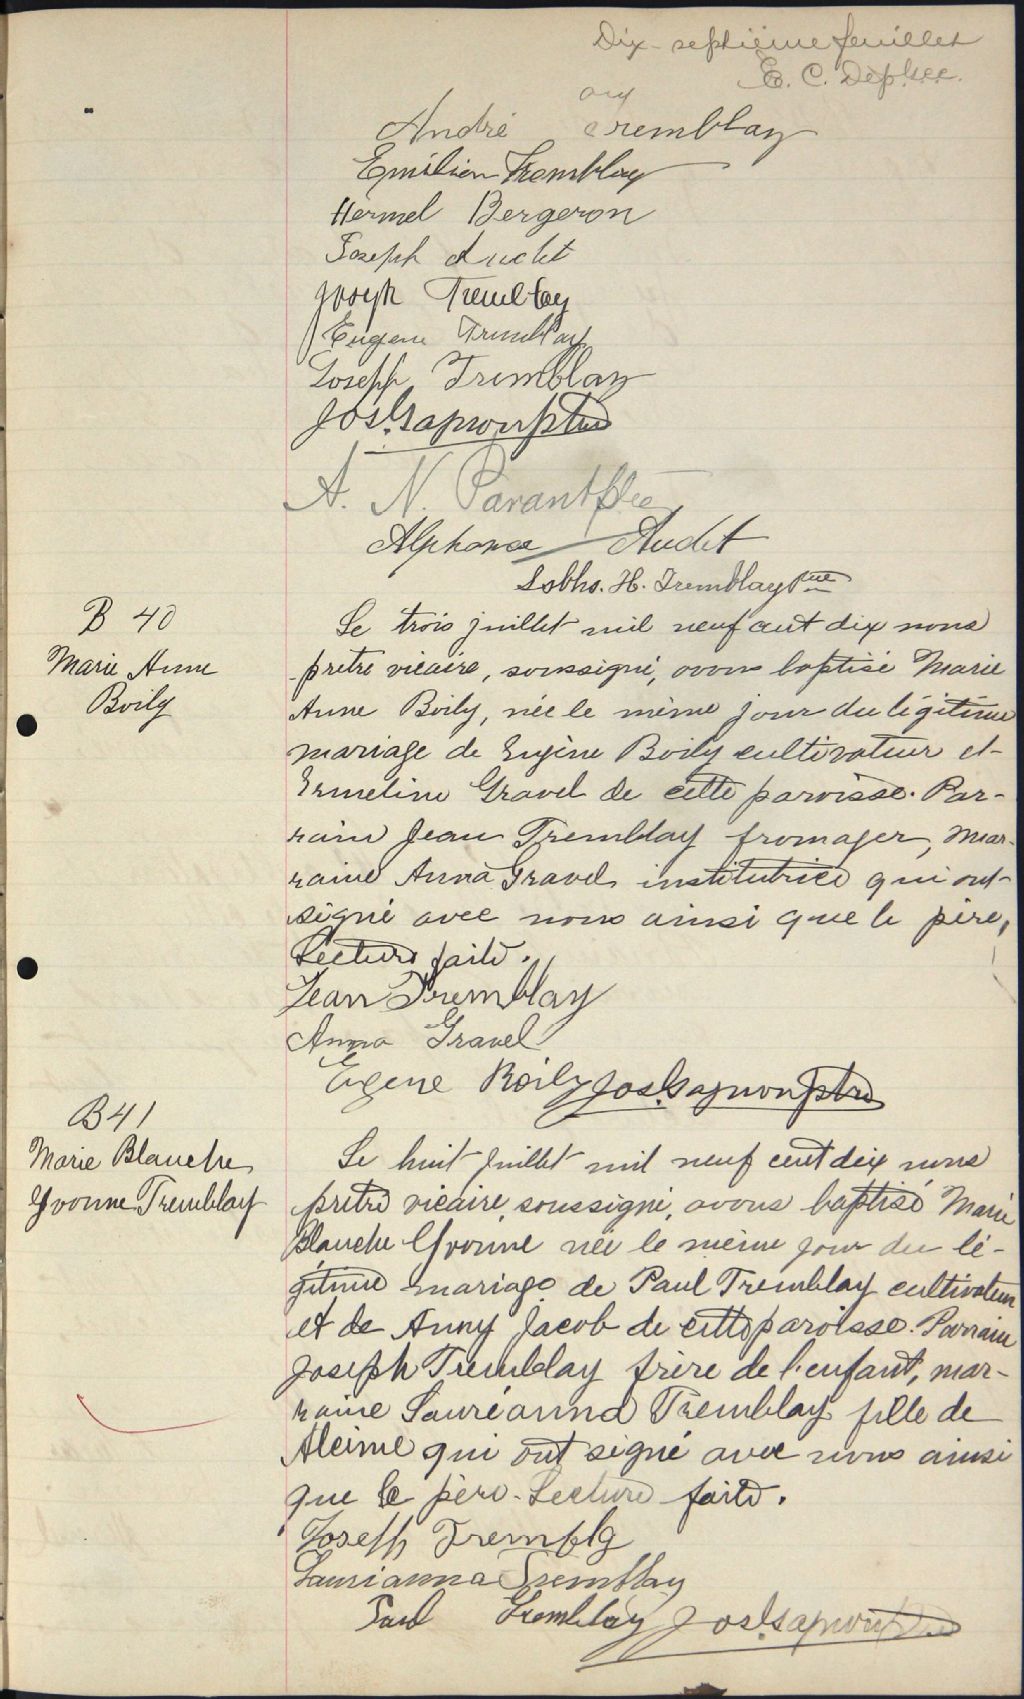 Dix-septième feuillet
E. C. Dep.
André Tremblay
Emilien Tremblay
Hermel Bergeron
Joseph Audet
Joseph Tremblay
Eugene Tremblay
Joseph Tremblay
Jos. Gagnon ptre
A. N. Parant ptre
Alphonse Audet
H. Tremblay ptre
B 40
Marie Anne
Boily
Le trois juillet mil neuf cent dix nous
prêtre vicaire, soussigné, avons baptisé Marie
Anne Boily, née le même jour du légitime
mariage de Eugène Boily cultivateur et
Ermeline Gravel de cette paroisse. Par-
rain Jean Tremblay fromager, mar-
raine Anna Gravel institutrice qui ont
signé avec nous ainsi que le père,
Lecture faite.
Jean Tremblay
Anna Gravel
Eugene Boily Jos. Gagnon ptre
B 41
Marie Blanche
Yvonne Tremblay
Le huit juillet mil neuf cent dix nous
prêtre vicaire, soussigné, avons baptisé Marie
Blanche Yvonne née le même jour du lé-
gitime mariage de Paul Tremblay cultivateur
et de Anny Jacob de cette paroisse. Parrain
Joseph Tremblay frère de l'enfant, mar-
raine Lauréanna Tremblay fille de
Alcime qui ont signé avec nous ainsi
que le père. Lecture faite.
Joseph Trembly
Laurianna Tremblay
Paul Tremblay Jos. Gagnon ptre